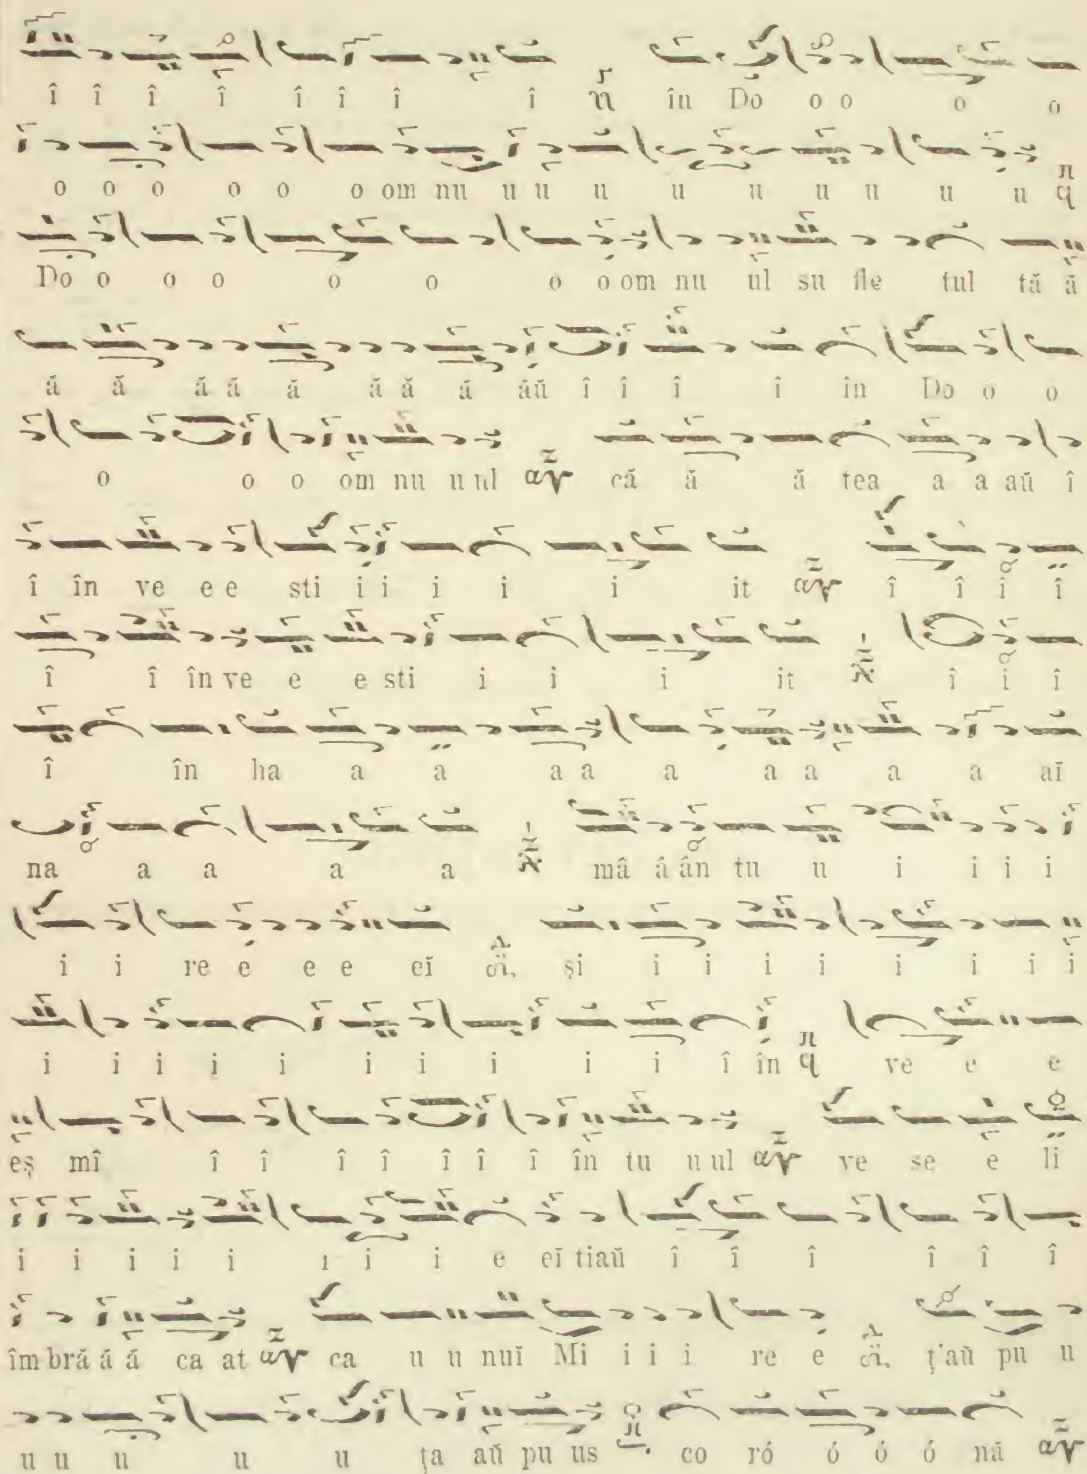 î î î î î î î î în Do o o o o
o o o o o o om nu u u u u u u u u u
Do o o o o o o o om nu ul su fle tul tă ă
ă ă ă ă ă ă ă ă ăŭ î î î î în Do o o
o o o om nu u ul că ă ă tea a a aŭ î
î în ve e e sti i i i i i it î î î î
î î în ve e e sti i i i it î i î
î în ha a a a a a a a a a aĭ
na a a a a mâ â ân tu u i i i i
i i re e e e eĭ și i i i i i i i
i i i i i i i i i i î în ve e e
eș mî î î î î î î î în tu u ul ve se e li
i i i i i i i i e eĭ tiaŭ î î î î î î
îm bră ă ă ca at ca u u nuĭ Mi i i i re e ț'aŭ pu u
u u u u u ța aŭ pu us co ró ó ó ó nă